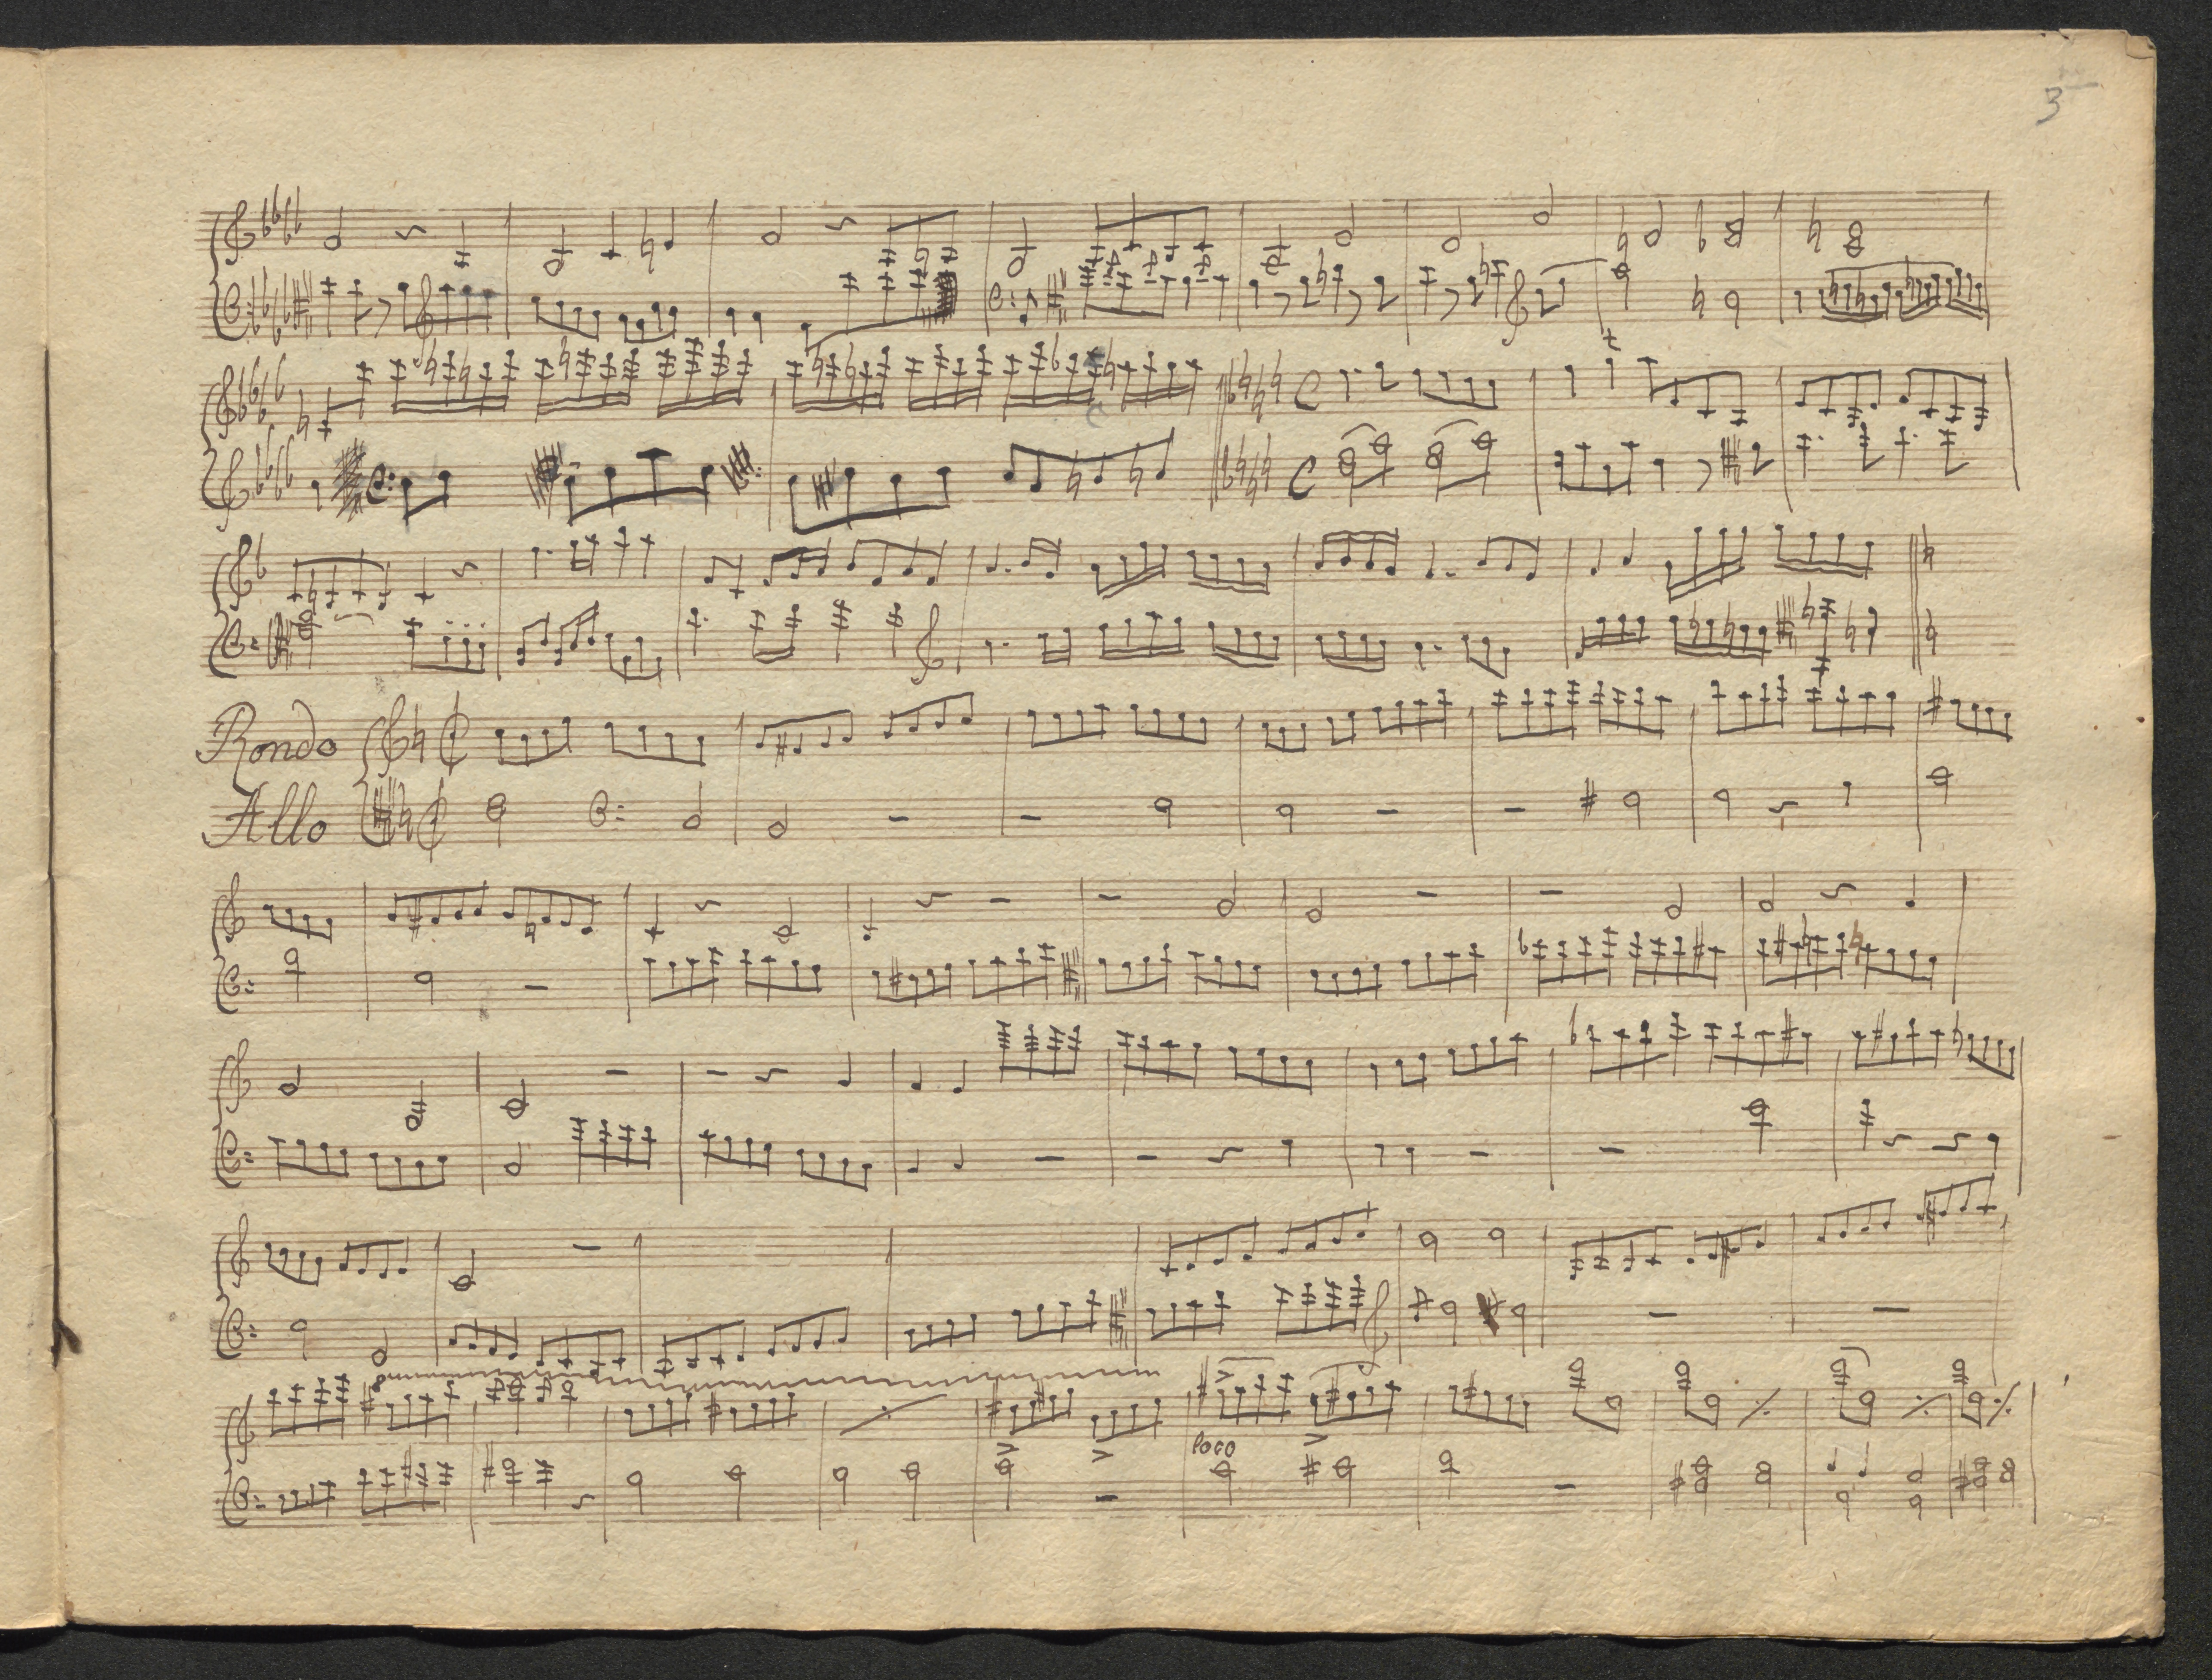 3
Rondo
Allo
loco